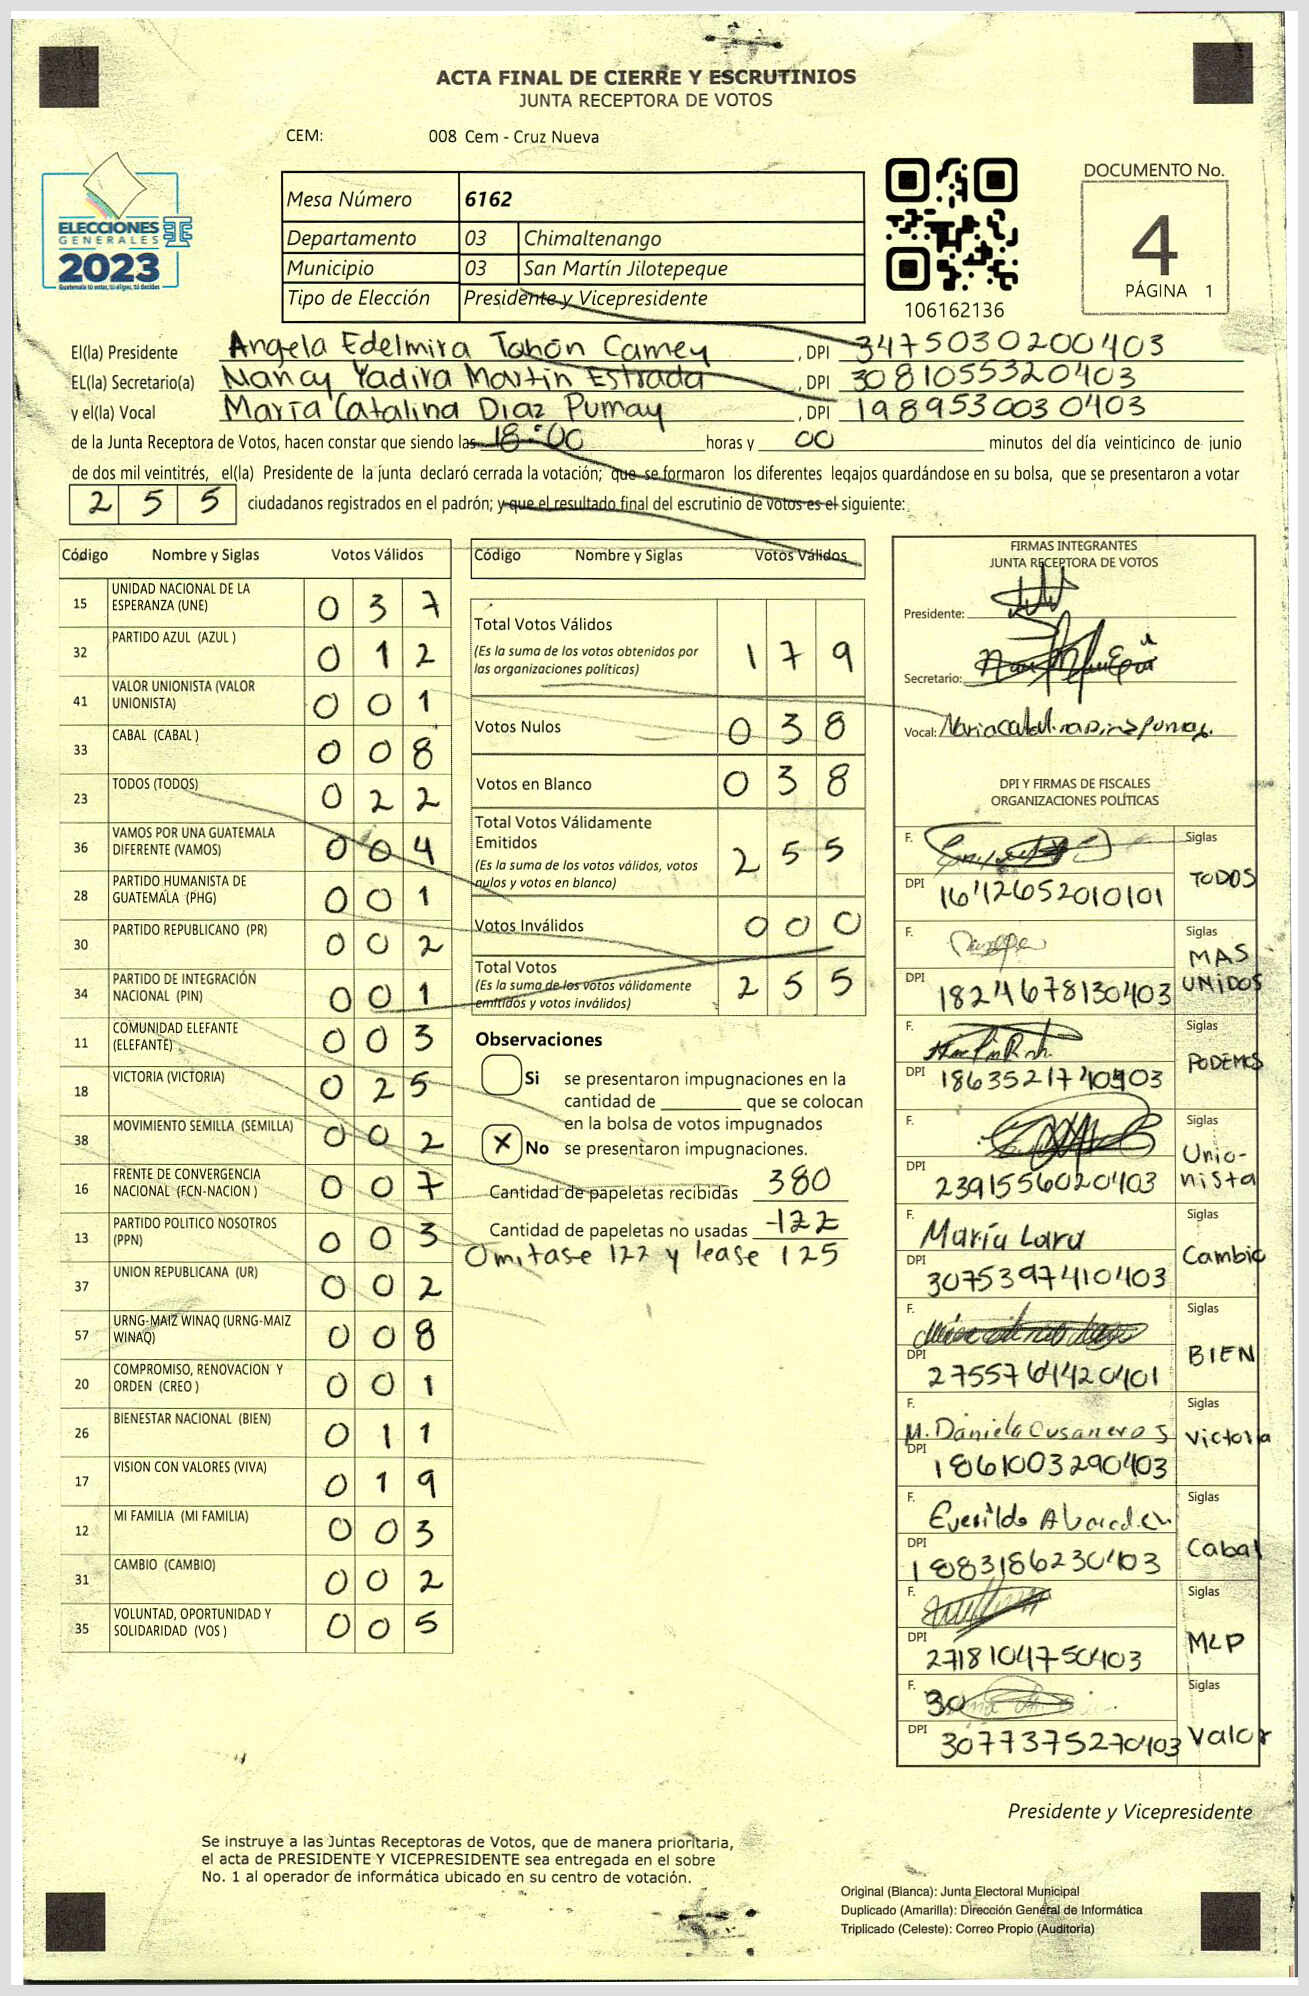 ACTA FINAL DE CIERRE Y ESCRUTINIOS
JUNTA RECEPTORA DE VOTOS
CEM: 008 Cem - Cruz Nueva
ELECCIONES
GENERALES
2023
Guatemala tú votas, tú eliges, tú decides
Mesa Número 6162
Departamento 03 Chimaltenango
Municipio 03 San Martín Jilotepeque
Tipo de Elección Presidente y Vicepresidente
106162136
DOCUMENTO No.
4
PÁGINA 1
El(la) Presidente Angela Edelmira Tohón Camey , DPI 3475030200403
EL(la) Secretario(a) Nancy Yadira Martin Estrada , DPI 3081055320403
y el(la) Vocal María Catalina Diaz Pumay , DPI 1989530030403
de la Junta Receptora de Votos, hacen constar que siendo las 18:00 horas y 00 minutos del día veinticinco de junio
de dos mil veintitrés, el(la) Presidente de la junta declaró cerrada la votación; que se formaron los diferentes legajos guardándose en su bolsa, que se presentaron a votar
2 5 5 ciudadanos registrados en el padrón; y que el resultado final del escrutinio de votos es el siguiente:
Código Nombre y Siglas Votos Válidos
15 UNIDAD NACIONAL DE LA ESPERANZA (UNE) 0 3 7
32 PARTIDO AZUL (AZUL ) 0 1 2
41 VALOR UNIONISTA (VALOR UNIONISTA) 0 0 1
33 CABAL (CABAL ) 0 0 8
23 TODOS (TODOS) 0 2 2
36 VAMOS POR UNA GUATEMALA DIFERENTE (VAMOS) 0 0 4
28 PARTIDO HUMANISTA DE GUATEMALA (PHG) 0 0 1
30 PARTIDO REPUBLICANO (PR) 0 0 2
34 PARTIDO DE INTEGRACIÓN NACIONAL (PIN) 0 0 1
11 COMUNIDAD ELEFANTE (ELEFANTE) 0 0 3
18 VICTORIA (VICTORIA) 0 2 5
38 MOVIMIENTO SEMILLA (SEMILLA) 0 0 2
16 FRENTE DE CONVERGENCIA NACIONAL (FCN-NACION ) 0 0 7
13 PARTIDO POLITICO NOSOTROS (PPN) 0 0 3
37 UNION REPUBLICANA (UR) 0 0 2
57 URNG-MAIZ WINAQ (URNG-MAIZ WINAQ) 0 0 8
20 COMPROMISO, RENOVACION Y ORDEN (CREO ) 0 0 1
26 BIENESTAR NACIONAL (BIEN) 0 1 1
17 VISION CON VALORES (VIVA) 0 1 9
12 MI FAMILIA (MI FAMILIA) 0 0 3
31 CAMBIO (CAMBIO) 0 0 2
35 VOLUNTAD, OPORTUNIDAD Y SOLIDARIDAD (VOS ) 0 0 5
Código Nombre y Siglas Votos Válidos
Total Votos Válidos 1 7 9
(Es la suma de los votos obtenidos por
las organizaciones políticas)
Votos Nulos 0 3 8
Votos en Blanco 0 3 8
Total Votos Válidamente
Emitidos 2 5 5
(Es la suma de los votos válidos, votos
nulos y votos en blanco)
Votos Inválidos 0 0 0
Total Votos 2 5 5
(Es la suma de los votos válidamente
emitidos y votos inválidos)
Observaciones
Si se presentaron impugnaciones en la
cantidad de ________ que se colocan
en la bolsa de votos impugnados
X No se presentaron impugnaciones.
Cantidad de papeletas recibidas 380
Cantidad de papeletas no usadas -122
Omitase 122 y lease 125
FIRMAS INTEGRANTES
JUNTA RECEPTORA DE VOTOS
Presidente:
Secretario:
Vocal:
DPI Y FIRMAS DE FISCALES
ORGANIZACIONES POLÍTICAS
F. Siglas
DPI 1642652010101 TODOS
F. Siglas
DPI 1824678130403 MAS UNIDOS
F. Siglas
DPI PODEMOS
F. Siglas
DPI 2391556020403 Unio-nista
F. María Lara Siglas
DPI 3075397410403 Cambio
F. Siglas
DPI BIEN
F. M. Daniela Cusanero S Siglas
DPI 1861003290403 Victoria
F. Siglas
DPI 1883186230403 Cabal
F. Siglas
DPI 2718104750403 MLP
F. 30 Siglas
DPI 3077375270403 Valor
Presidente y Vicepresidente
Se instruye a las Juntas Receptoras de Votos, que de manera prioritaria,
el acta de PRESIDENTE Y VICEPRESIDENTE sea entregada en el sobre
No. 1 al operador de informática ubicado en su centro de votación.
Original (Blanca): Junta Electoral Municipal
Duplicado (Amarilla): Dirección General de Informática
Triplicado (Celeste): Correo Propio (Auditoría)